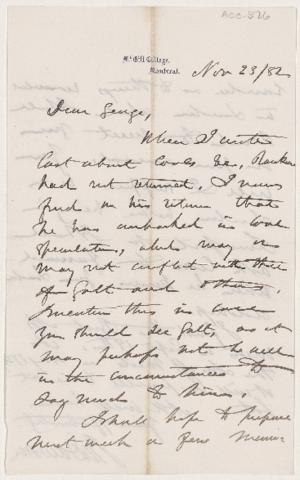 ACC-526
McGill College,
Montreal.
Nov 23/82
Dear George,
When I wrote
last about Coals &c,
had not returned, I now
find on his return that
he has embarked in coal
speculations, which may or
may not conflict with those
of Galt and others.
I mention this in case
you should see Galt, as it
may perhaps not be well
in the circumstances to
say much to him.
I shall hope to prepare
next week a few memor